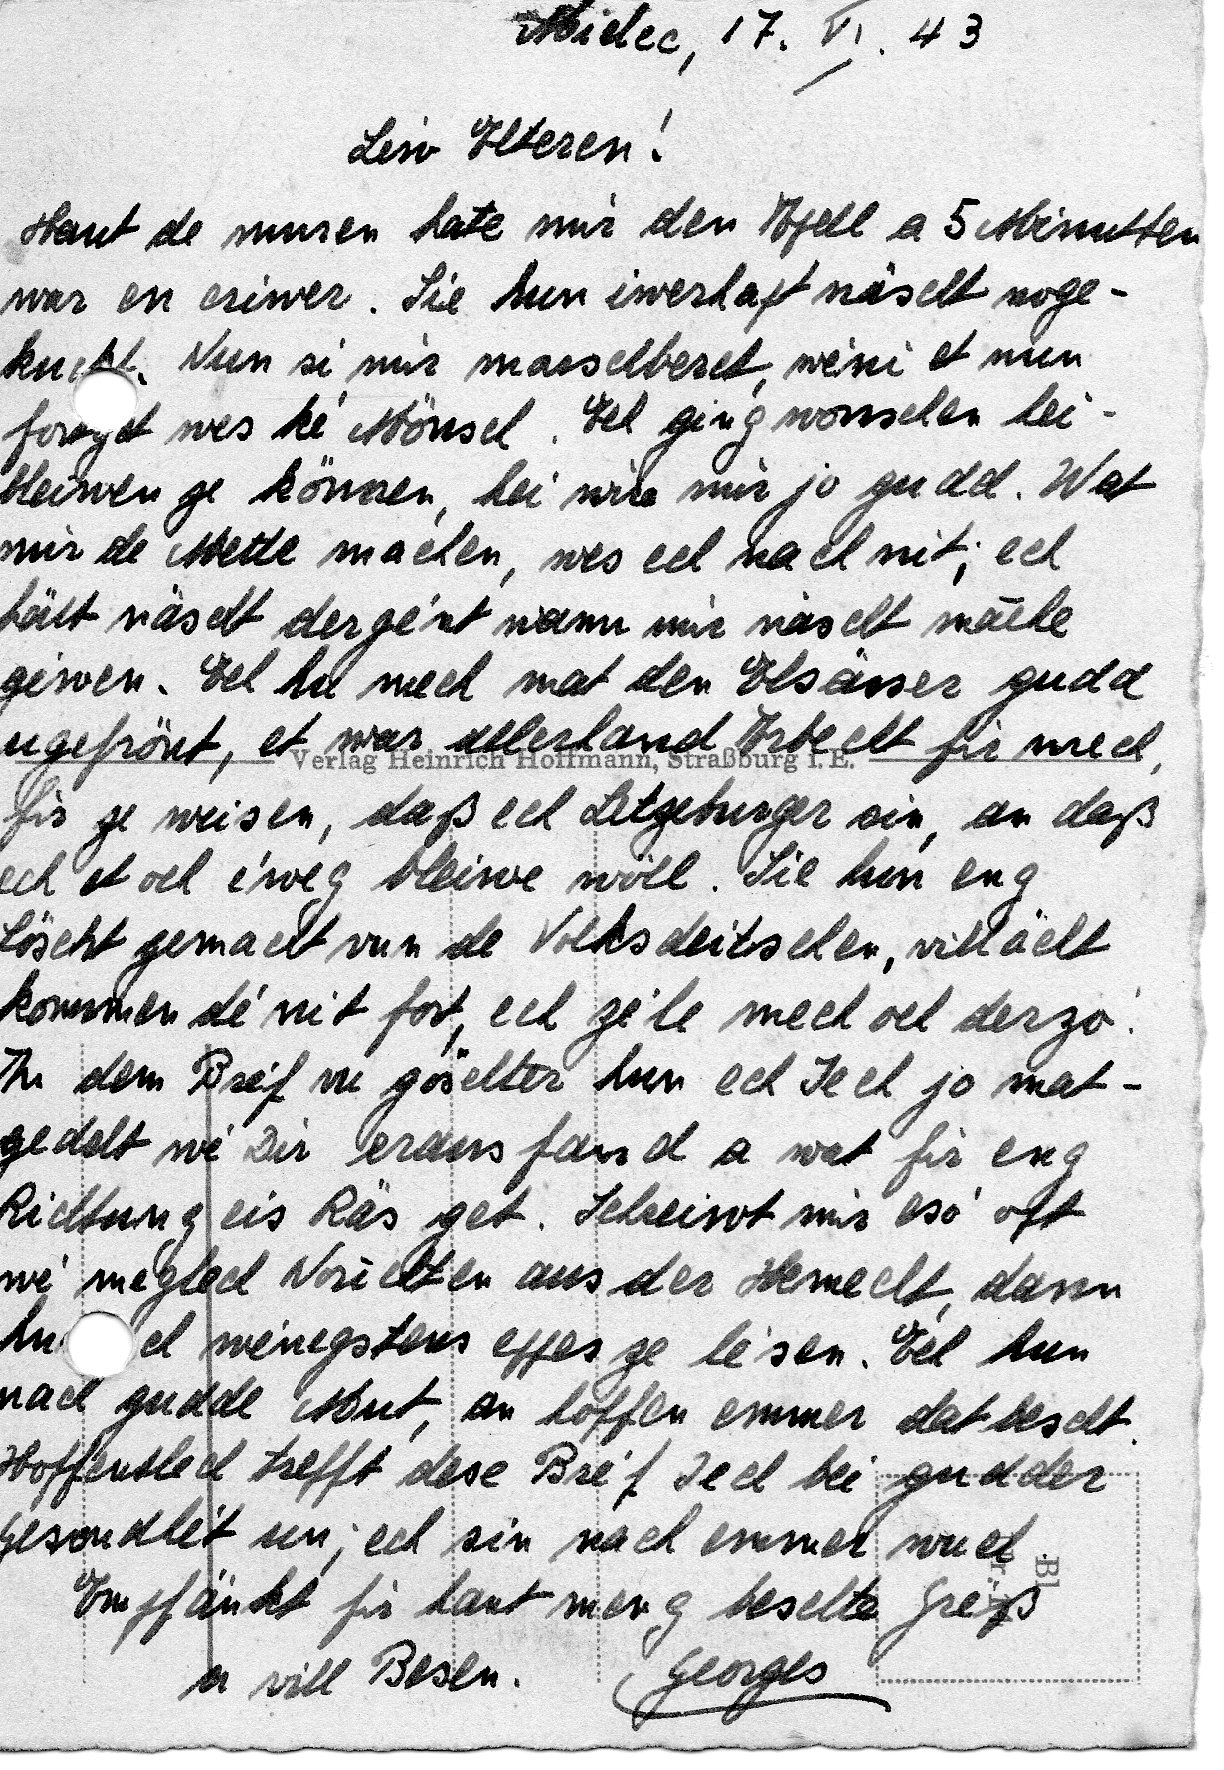 Mielec, 17. VI. 43
Leiw Elteren!
Haut de muren hate mir den Apell a 5 Minutten
war en eriwer. Sie hun iwerhapt näscht noge-
kuckt. Nun si mir marschberet, wéni et nun
fortgét wes ké Mönsch. Ech ging wonschen hei-
bleiwen ze können, hei wir mir jo gudd. Wat
mir de Mette machen, wes ech nach nit; ech
hält näscht dergént wann mir näscht mäche
giwen. Ech hu mech mat den Elsässer gudd
ugefrönt, et war allerhand Arbecht fir mech,
Verlag Heinrich Hoffmann, Straßburg i. E.
fir ze weisen, daß ech Letzeburger sin, an daß
ech et och éweg bleiwe wöll. Sie hun eng
Löscht gemacht vun de Volksdeitschen, villächt
kommen dé nit fort, ech zéle mech och derzo.
An dem Bréf vu göschter hun ech Iech jo mat-
gedelt wé Dir eraus fand a wat fir eng
Richtung eis Räs get. Schreiwt mir esó oft
wé méglech Norichten aus der Hemecht, dann
hu ech wéinegstens eppes ze lésen. Ech hun
nach gudde Mut, an hoffen emmer dat bescht.
Hoffentlech trefft dese Bréf Iech bei gudder
Gesondhét un; ech sin nach emmer wuel.
Empfänkt fir haut meng beschte Gréiß
a vill Besen. Georges